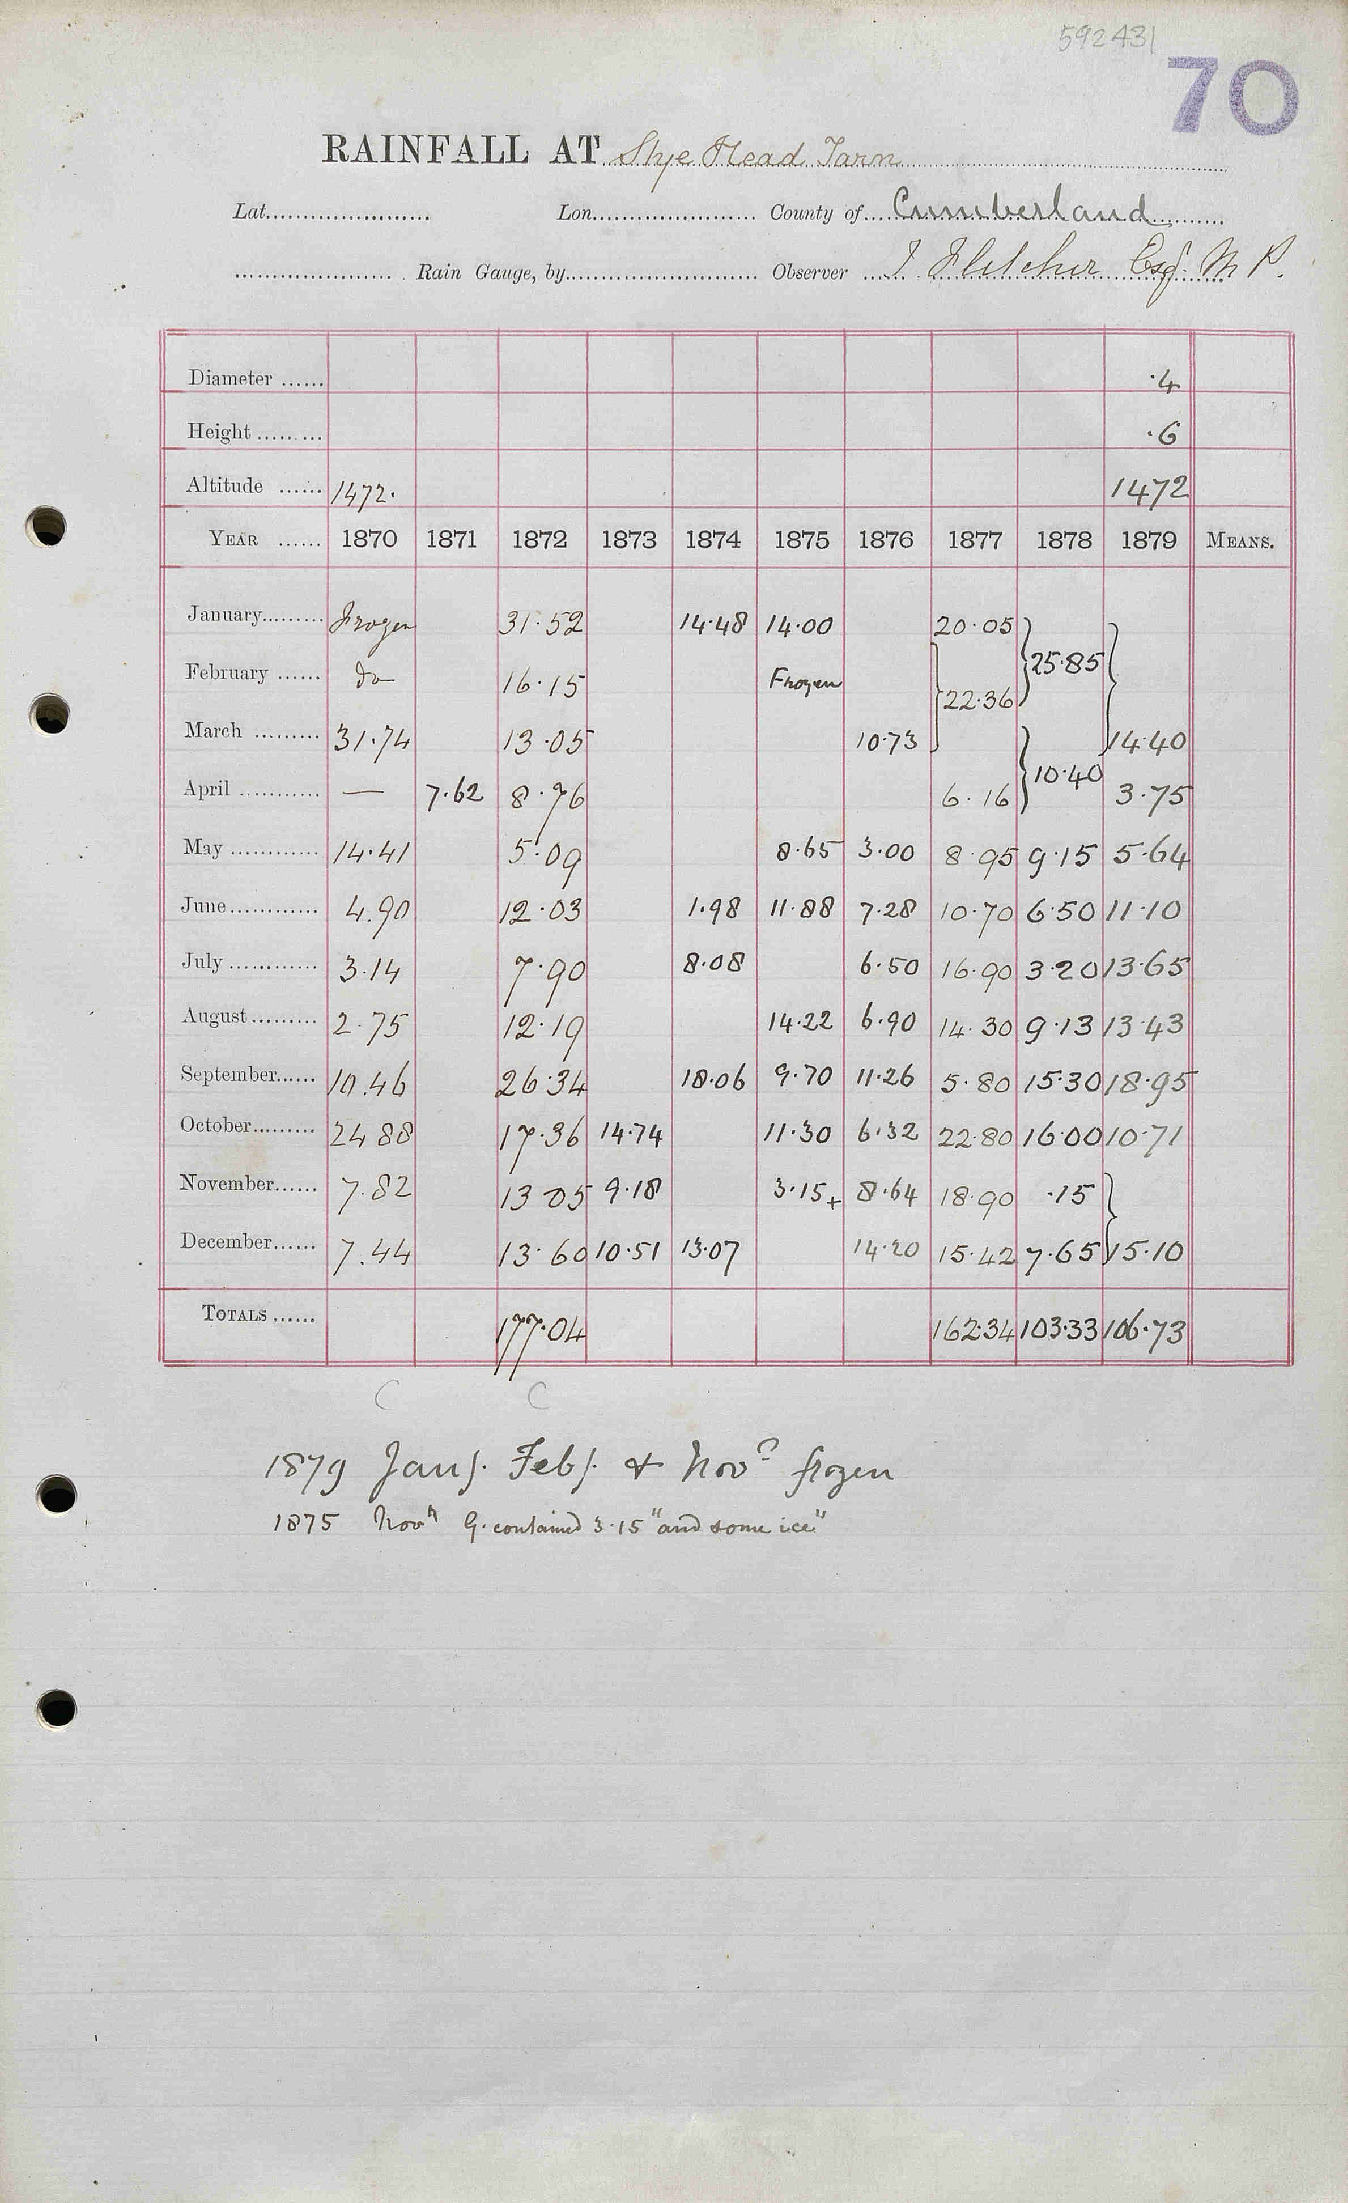 592431
70
RAINFALL AT Stye Head Tarn
Lat. Lon. County of Cumberland
Rain Gauge, by Observer I Fletcher Esq. M P.
Diameter ...... ·4
Height ......... ·6
Altitude ...... 1472· 1472
YEAR ...... 1870 1871 1872 1873 1874 1875 1876 1877 1878 1879 MEANS.
January......... Frozen 31·52 14·48 14·00 20·05
February ...... do 16·15 Frozen 22·36 25·85
March ......... 31·74 13·05 10·73 14·40
April ............ — 7·62 8·76 6·16 10·40 3·75
May ............ 14·41 5·09 8·65 3·00 8·95 9·15 5·64
June............ 4.90 12·03 1·98 11·88 7·28 10·70 6·50 11·10
July ............ 3·14 7·90 8·08 6·50 16·90 3·20 13·65
August......... 2·75 12·19 14·22 6·90 14·30 9·13 13·43
September...... 10.46 26·34 18·06 9·70 11·26 5·80 15·30 18·95
October......... 24 88 17·36 14·74 11·30 6·32 22·80 16·00 10·71
November...... 7·82 13 05 9·18 3·15+ 8·64 18·90 ·15
December...... 7.44 13·60 10·51 13·07 14·20 15·42 7·65 15·10
TOTALS ...... 177·04 162·34 103·33 106·73
C C
1879 Jany. Feby. & Novr frozen
1875 Novr G. contained 3·15 "and some ice"